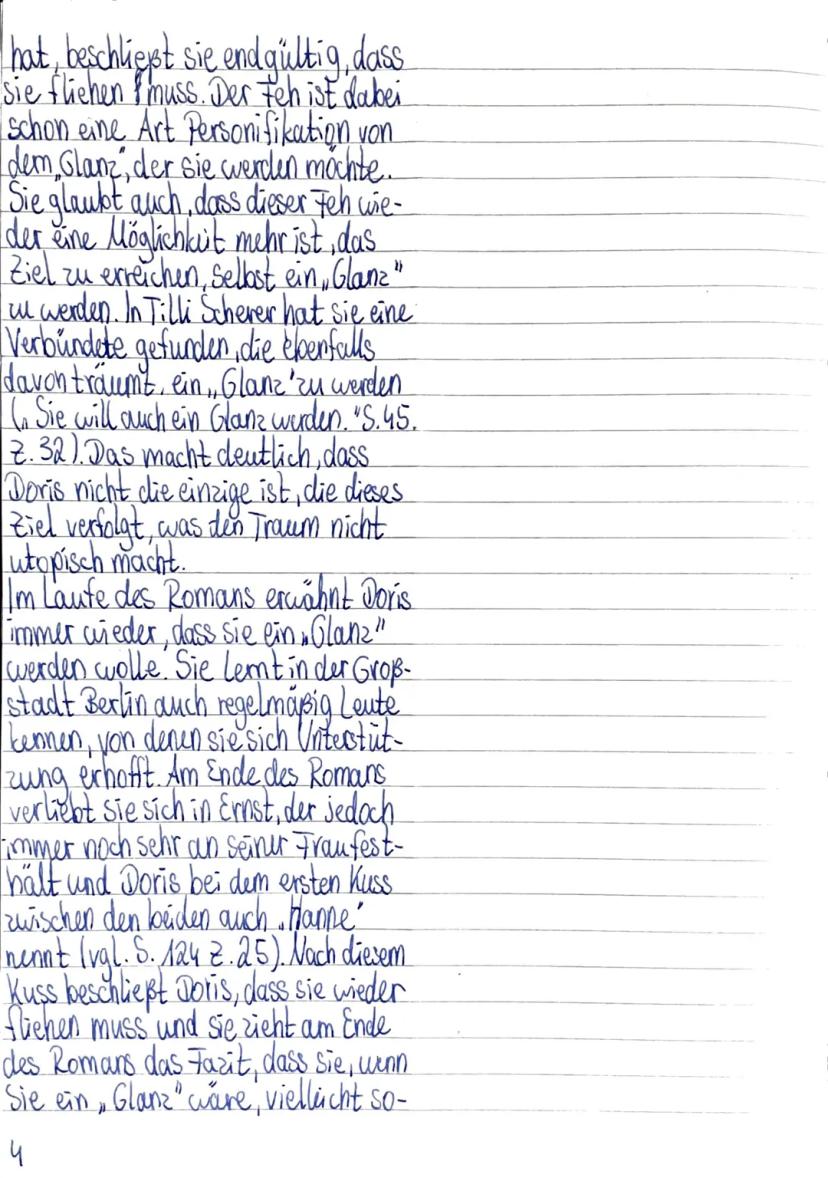 hat, beschließt sie endgültig, dass
sie fliehen muss. Der Feh ist dabei
schon eine Art Personifikation von
dem „Glanz“, der sie werden möchte.
Sie glaubt auch, dass dieser Feh wie-
der eine Möglichkeit mehr ist, das
Ziel zu erreichen, selbst ein „Glanz“
zu werden. In Tilli Scherer hat sie eine
Verbündete gefunden, die ebenfalls
davon träumt, ein „Glanz“ zu werden
(„Sie will auch ein Glanz werden.“ S.45.
Z. 32). Das macht deutlich, dass
Doris nicht die einzige ist, die dieses
Ziel verfolgt, was den Traum nicht
utopisch macht.
Im Laufe des Romans erwähnt Doris
immer wieder, dass sie ein „Glanz“
werden wolle. Sie lernt in der Groß-
stadt Berlin auch regelmäßig Leute
kennen, von denen sie sich Unterstüt-
zung erhofft. Am Ende des Romans
verliebt sie sich in Ernst, der jedoch
immer noch sehr an seiner Frau fest-
hält und Doris bei dem ersten Kuss
zwischen den beiden auch „Hanne“
nennt (vgl. S. 124 Z. 25). Nach diesem
Kuss beschließt Doris, dass sie wieder
fliehen muss und sie zieht am Ende
des Romans das Fazit, dass sie, wenn
Sie ein „Glanz“ wäre, vielleicht so-
4